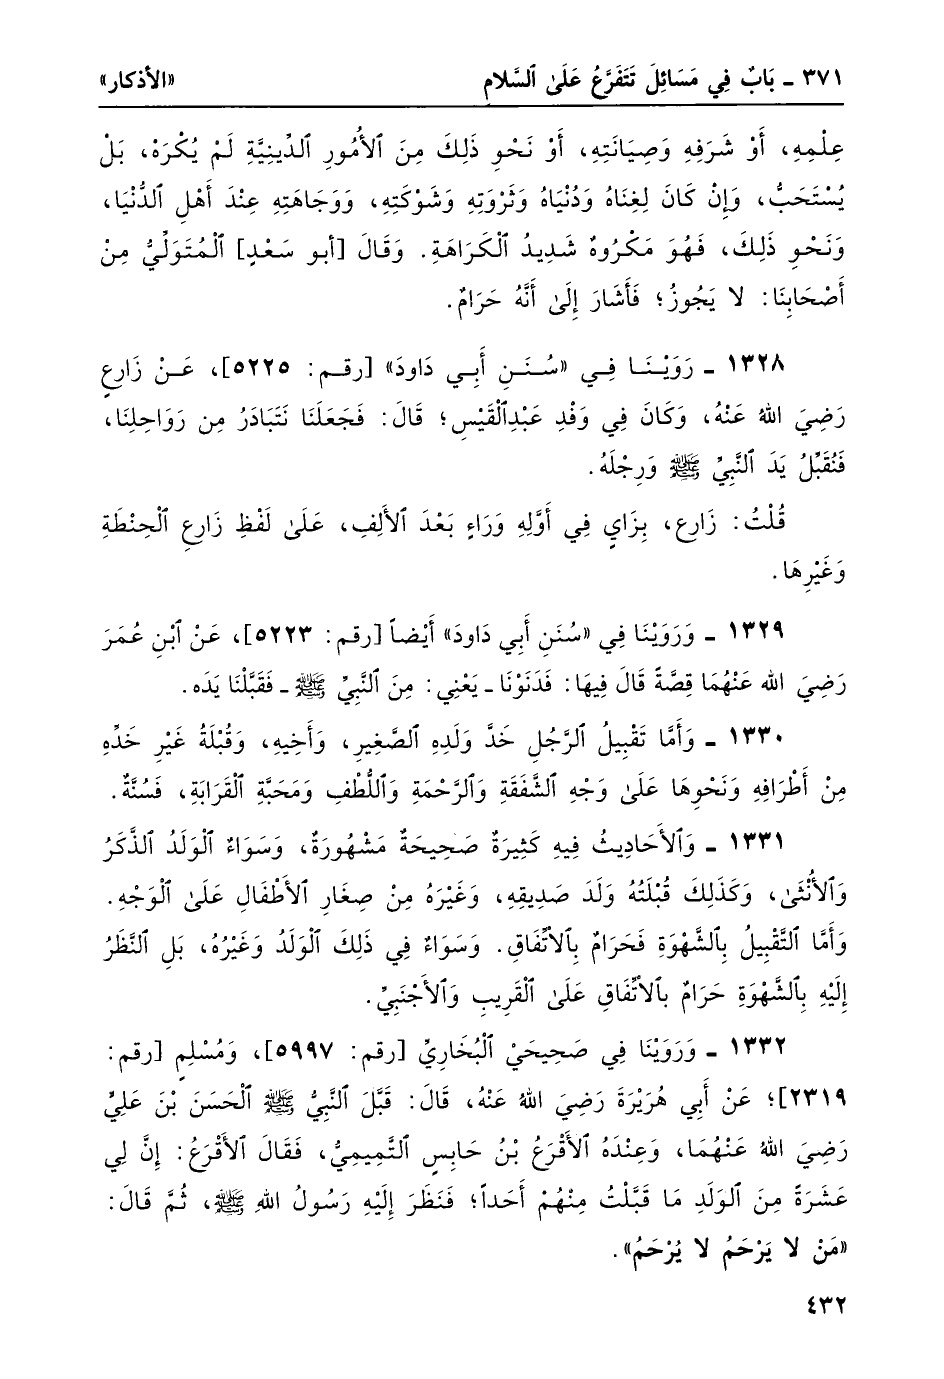 ٣٧١ ـ بَابٌ فِي مَسَائِلَ تَتَفَرَّعُ عَلَىٰ ٱلسَّلامِ «الأذكار»
عِلْمِهِ، أَوْ شَرَفِهِ وَصِيَانَتِهِ، أَوْ نَحْوِ ذَلِكَ مِنَ ٱلأُمُورِ ٱلدِّينِيَّةِ لَمْ يُكْرَهْ، بَلْ
يُسْتَحَبُّ، وَإِنْ كَانَ لِغِنَاهُ وَدُنْيَاهُ وَثَرْوَتِهِ وَشَوْكَتِهِ، وَوَجَاهَتِهِ عِنْدَ أَهْلِ ٱلدُّنْيَا،
وَنَحْوِ ذَلِكَ، فَهُوَ مَكْرُوهٌ شَدِيدُ ٱلْكَرَاهَةِ. وَقَالَ [أبو سَعْدٍ] ٱلْمُتَوَلِّيُّ مِنْ
أَصْحَابِنَا: لا يَجُوزُ؛ فَأَشَارَ إِلَىٰ أَنَّهُ حَرَامٌ.
١٣٢٨ ـ رَوَيْنَا فِي «سُنَنِ أَبِي دَاودَ» [رقم: ٥٢٢٥]، عَنْ زَارِعٍ
رَضِيَ اللهُ عَنْهُ، وَكَانَ فِي وَفْدِ عَبْدِٱلْقَيْسِ؛ قَالَ: فَجَعَلْنَا نَتَبَادَرُ مِن رَوَاحِلِنَا،
فَنُقَبِّلُ يَدَ ٱلنَّبِيِّ ﷺ وَرِجْلَهُ.
قُلْتُ: زَارِع، بِزَايٍ فِي أَوَّلِهِ وَرَاءٍ بَعْدَ ٱلأَلِفِ، عَلَىٰ لَفْظِ زَارِعِ ٱلْحِنْطَةِ
وَغَيْرِهَا.
١٣٢٩ ـ وَرَوَيْنَا فِي «سُنَنِ أَبِي دَاودَ» أَيْضاً [رقم: ٥٢٢٣]، عَنْ ٱبْنِ عُمَرَ
رَضِيَ الله عَنْهُمَا قِصَّةً قَالَ فِيهَا: فَدَنَوْنَا ـ يَعْنِي: مِنَ ٱلنَّبِيِّ ﷺ ـ فَقَبَّلْنَا يَدَه.
١٣٣٠ ـ وَأَمَّا تَقْبِيلُ ٱلرَّجُلِ خَدَّ وَلَدِهِ ٱلصَّغِيرِ، وَأَخِيهِ، وَقُبْلَةُ غَيْرِ خَدِّهِ
مِنْ أَطْرَافِهِ وَنَحْوِهَا عَلَىٰ وَجْهِ ٱلشَّفَقَةِ وَٱلرَّحْمَةِ وَٱللُّطْفِ وَمَحَبَّةِ ٱلْقَرَابَةِ، فَسُنَّةٌ.
١٣٣١ ـ وَٱلأَحَادِيثُ فِيهِ كَثِيرَةٌ صَحِيحَةٌ مَشْهُورَةٌ، وَسَوَاءٌ ٱلْوَلَدُ ٱلذَّكَرُ
وَٱلأُنْثَىٰ، وَكَذَلِكَ قُبْلَتُهُ وَلَدَ صَدِيقِهِ، وَغَيْرَهُ مِنْ صِغَارِ ٱلأَطْفَالِ عَلَىٰ ٱلْوَجْهِ.
وَأَمَّا ٱلتَّقْبِيلُ بِٱلشَّهْوَةِ فَحَرَامٌ بِٱلاتِّفَاقِ. وَسَوَاءٌ فِي ذَلِكَ ٱلْوَلَدُ وَغَيْرُهُ، بَلِ ٱلنَّظَرُ
إِلَيْهِ بِٱلشَّهْوَةِ حَرَامٌ بِٱلاتِّفَاقِ عَلَىٰ ٱلْقَرِيبِ وَٱلأَجْنَبِيِّ.
١٣٣٢ ـ وَرَوَيْنَا فِي صَحِيحَيْ ٱلْبُخَارِيِّ [رقم: ٥٩٩٧]، وَمُسْلِمٍ [رقم:
٢٣١٩]؛ عَنْ أَبِي هُرَيْرَةَ رَضِيَ اللهُ عَنْهُ، قَالَ: قَبَّلَ ٱلنَّبِيُّ ﷺ ٱلْحَسَنَ بْنَ عَلِيٍّ
رَضِيَ اللهُ عَنْهُمَا، وَعِنْدَهُ ٱلأَقْرَعُ بْنُ حَابِسٍ ٱلتَّمِيمِيُّ، فَقَالَ ٱلأَقْرَعُ: إِنَّ لِي
عَشَرَةً مِنَ ٱلوَلَدِ مَا قَبَّلْتُ مِنْهُمْ أَحَداً؛ فَنَظَرَ إِلَيْهِ رَسُولُ اللهِ ﷺ، ثُمَّ قَالَ:
«مَنْ لا يَرْحَمُ لا يُرْحَمُ».
٤٣٢